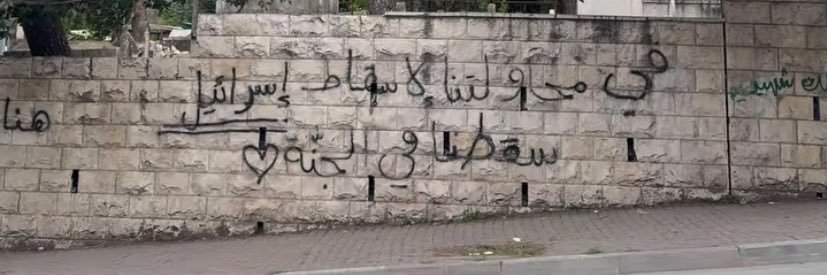 في محولتنا لإسقاط إسرائيل
سقطنا في الجنّة ♡
هنا